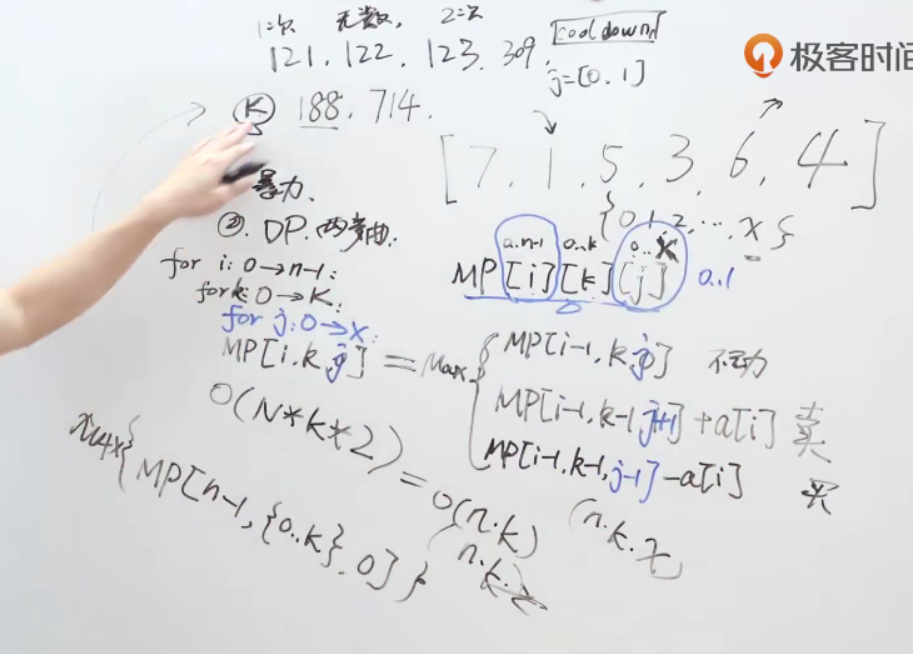 1次 无数次, 2次
121. 122. 123. 309. cooldown
j=[0,1]
极客时间
K 188. 714.
[7, 1, 5, 3, 6, 4]
暴力.
②. DP.
{0,1,2,...,X}
for i: 0→n-1:
0..n-1 0..k 0..X
MP[i][k][j] 0..1
for k: 0→K:
for j: 0→X:
MP[i,k,j] = Max
MP[i-1,k,j] 不动
MP[i-1,k-1,j+1]+a[i] 卖
MP[i-1,k-1,j-1]-a[i] 买
O(N*k*2) = O(n.k)
Max{MP[n-1,{0..k},0]}